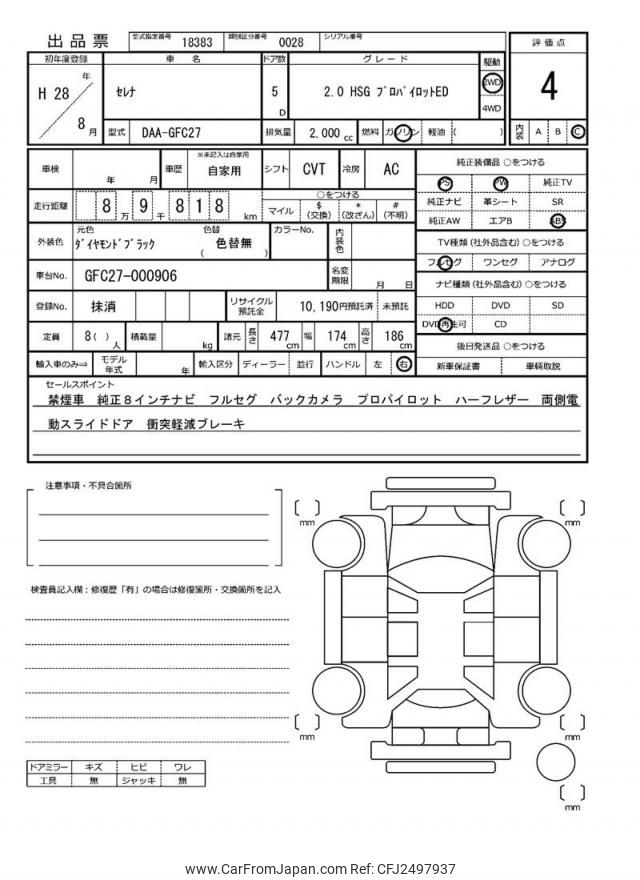 出品票 型式指定番号 18383 類別区分番号 0028 シリアル番号
初年度登録 車名 ドア数 グレード 駆動 評価点
H 28 年 8 月 セレナ 5 D 2.0 HSG プロパイロットED 2WD 4WD 4
型式 DAA-GFC27 排気量 2,000 cc 燃料 ガソリン 軽油 ( ) 内装 A B C
車検 年 月 車歴 ※未記入は自家用 自家用 シフト CVT 冷房 AC 純正装備品 ○をつける
PS PW 純正TV
走行距離 8 万 9 千 8 1 8 km ○をつける
マイル $ (交換) * (改ざん) # (不明)
純正ナビ 革シート SR
純正AW エアB ABS
外装色 元色 ダイヤモンドブラック 色替 ( 色替無 ) カラーNo. 内装色
TV種類 (社外品含む) ○をつける
フルセグ ワンセグ アナログ
車台No. GFC27-000906 名変期限 月 日
ナビ種類 (社外品含む) ○をつける
登録No. 抹消 リサイクル預託金 10,190円預託済 未預託
HDD DVD SD
DVD再生可 CD
定員 8( ) 人 積載量 kg 諸元 長さ 477 cm 幅 174 cm 高さ 186 cm
後日発送品 ○をつける
輸入車のみ⇒ モデル年式 年 輸入区分 ディーラー 並行 ハンドル 左 右
新車保証書 車輌取説
セールスポイント
禁煙車 純正8インチナビ フルセグ バックカメラ プロパイロット ハーフレザー 両側電
動スライドドア 衝突軽減ブレーキ
注意事項・不具合箇所
検査員記入欄：修復歴「有」の場合は修復箇所・交換箇所を記入
mm
mm
mm
mm
mm
ドアミラー キズ ヒビ ワレ
工具 無 ジャッキ 無
www.CarFromJapan.com Ref: CFJ2497937